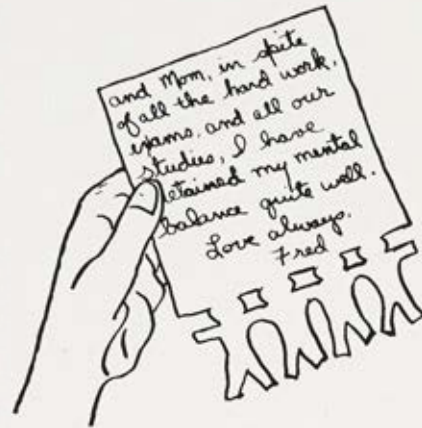 and Mom, in spite
of all the hard work,
exams, and all our
studies, I have
retained my mental
balance quite well.
Love always,
Fred